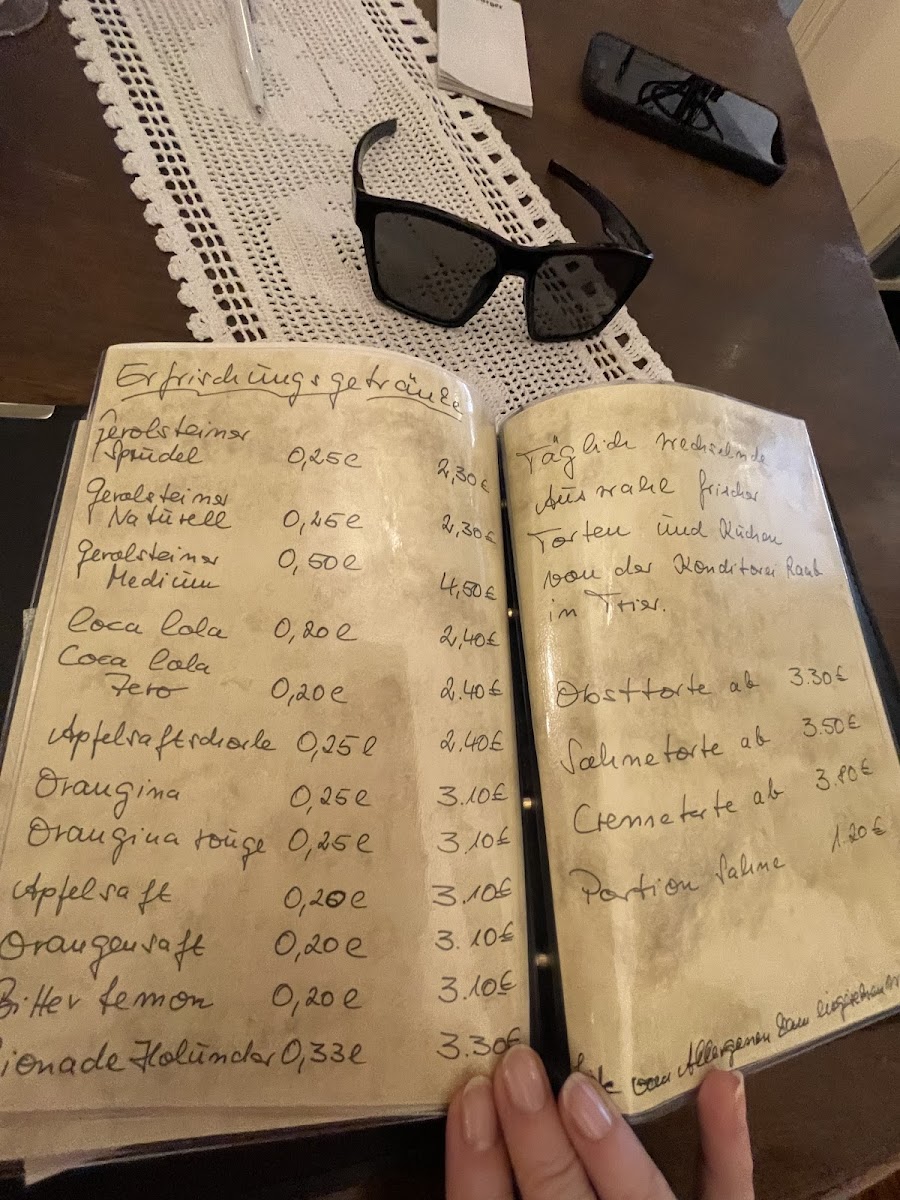 Erfrischungsgetränke
Gerolsteiner
Sprudel 0,25l 2,30€
Gerolsteiner
Naturell 0,25l 2,30€
Gerolsteiner 0,50l
Medium 4,50€
Coca Cola 0,20l 2,40€
Coca Cola
Zero 0,20l 2.40€
Apfelsaftschorle 0,25l 2.40€
Orangina 0,25l 3.10€
Orangina rouge 0,25l 3.10€
Apfelsaft 0,20l 3.10€
Orangensaft 0,20l 3.10€
Bitter Lemon 0,20l 3.10€
ionade Holunder 0,33l 3.30€
Täglich wechselnde
Auswahl frischer
Torten und Kuchen
von der Konditorei Raab
in Trier.
Obsttorte ab 3.30€
Sahnetorte ab 3.50€
Cremetorte ab 3.80€
Portion Sahne 1.20€
von Allergenen kann